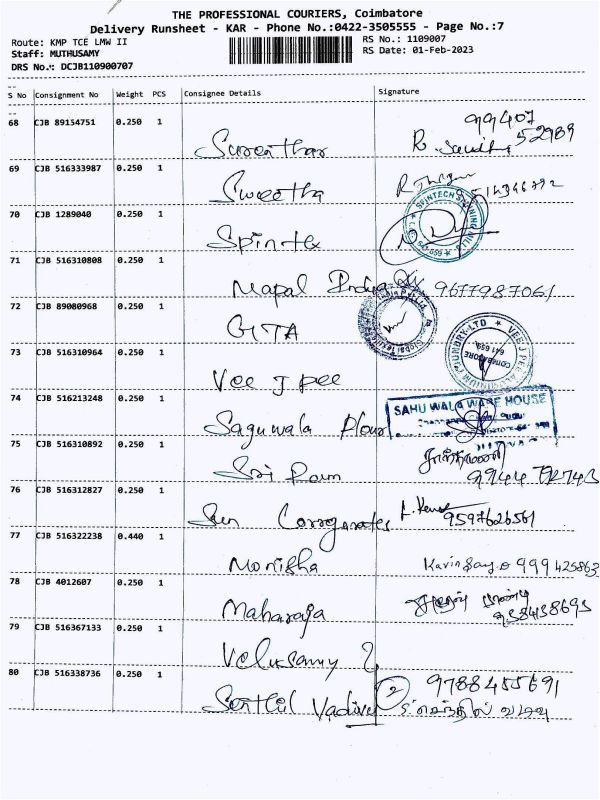 THE PROFESSIONAL COURIERS, Coimbatore
Delivery Runsheet - KAR - Phone No.:0422-3505555 - Page No.:7
Route: KMP TCE LMW II
Staff: MUTHUSAMY
DRS No.: DCJB110900707
RS No.: 1109007
RS Date: 01-Feb-2023
S No Consignment No Weight PCS Consignee Details Signature
68 CJB 89154751 0.250 1 99407
52989
69 CJB 516333987 0.250 1 Sweetha
70 CJB 1289040 0.250 1 Spintex SPINTECH SPINNING MILLS
71 CJB 516310808 0.250 1 Mapal India 9677987061
72 CJB 89080968 0.250 1 GITA
73 CJB 516310964 0.250 1 Vee J pee VEE J PEE ALUMINIUM FOUNDRY-LTD COIMBATORE
74 CJB 516213248 0.250 1 Saguwala Flour SAHUWALA WARE HOUSE
75 CJB 516310892 0.250 1 Sri Ram
76 CJB 516312827 0.250 1 Sun Corrogarates 9597626561
77 CJB 516322238 0.440 1 Monisha 999425863
78 CJB 4012607 0.250 1 Maharaja
79 CJB 516367133 0.250 1 Velusamy 2
80 CJB 516338736 0.250 1 Senthil Vadivel 2 9788455691